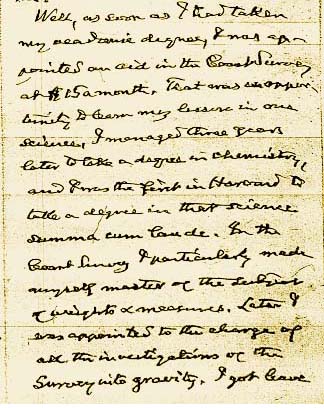 Well, as soon as I had taken
my academic degree, I was ap-
pointed an aid in the Coast Survey
at $15 a month. That was an oppor-
tunity to learn my lesson in one
science, I managed three years
later to take a degree in chemistry,
and I was the first in Harvard to
take a degree in that science
summa cum laude. In the
Coast Survey I particularly made
myself master of the subject
of weights & measures. Later I
was appointed to the charge of
all the investigations of the
Survey into gravity. I got leave